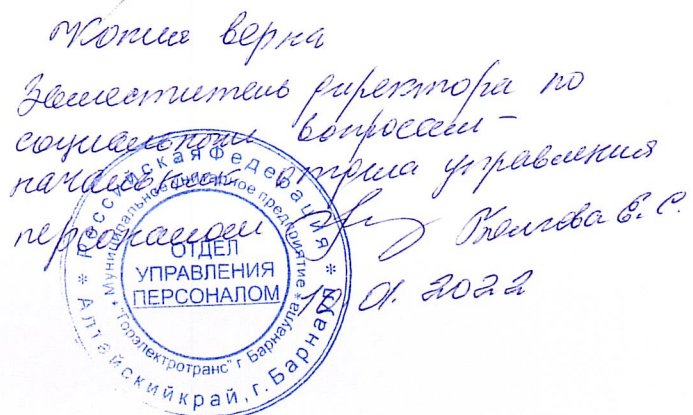 Копия верна
Заместитель директора по
социальным вопросам -
начальник отдела управления
персоналом Е. С.
01. 2022
* Российская Федерация * Алтайский край, г. Барнаул
Муниципальное унитарное предприятие * "Горэлектротранс" г. Барнаула *
ОТДЕЛ
УПРАВЛЕНИЯ
ПЕРСОНАЛОМ